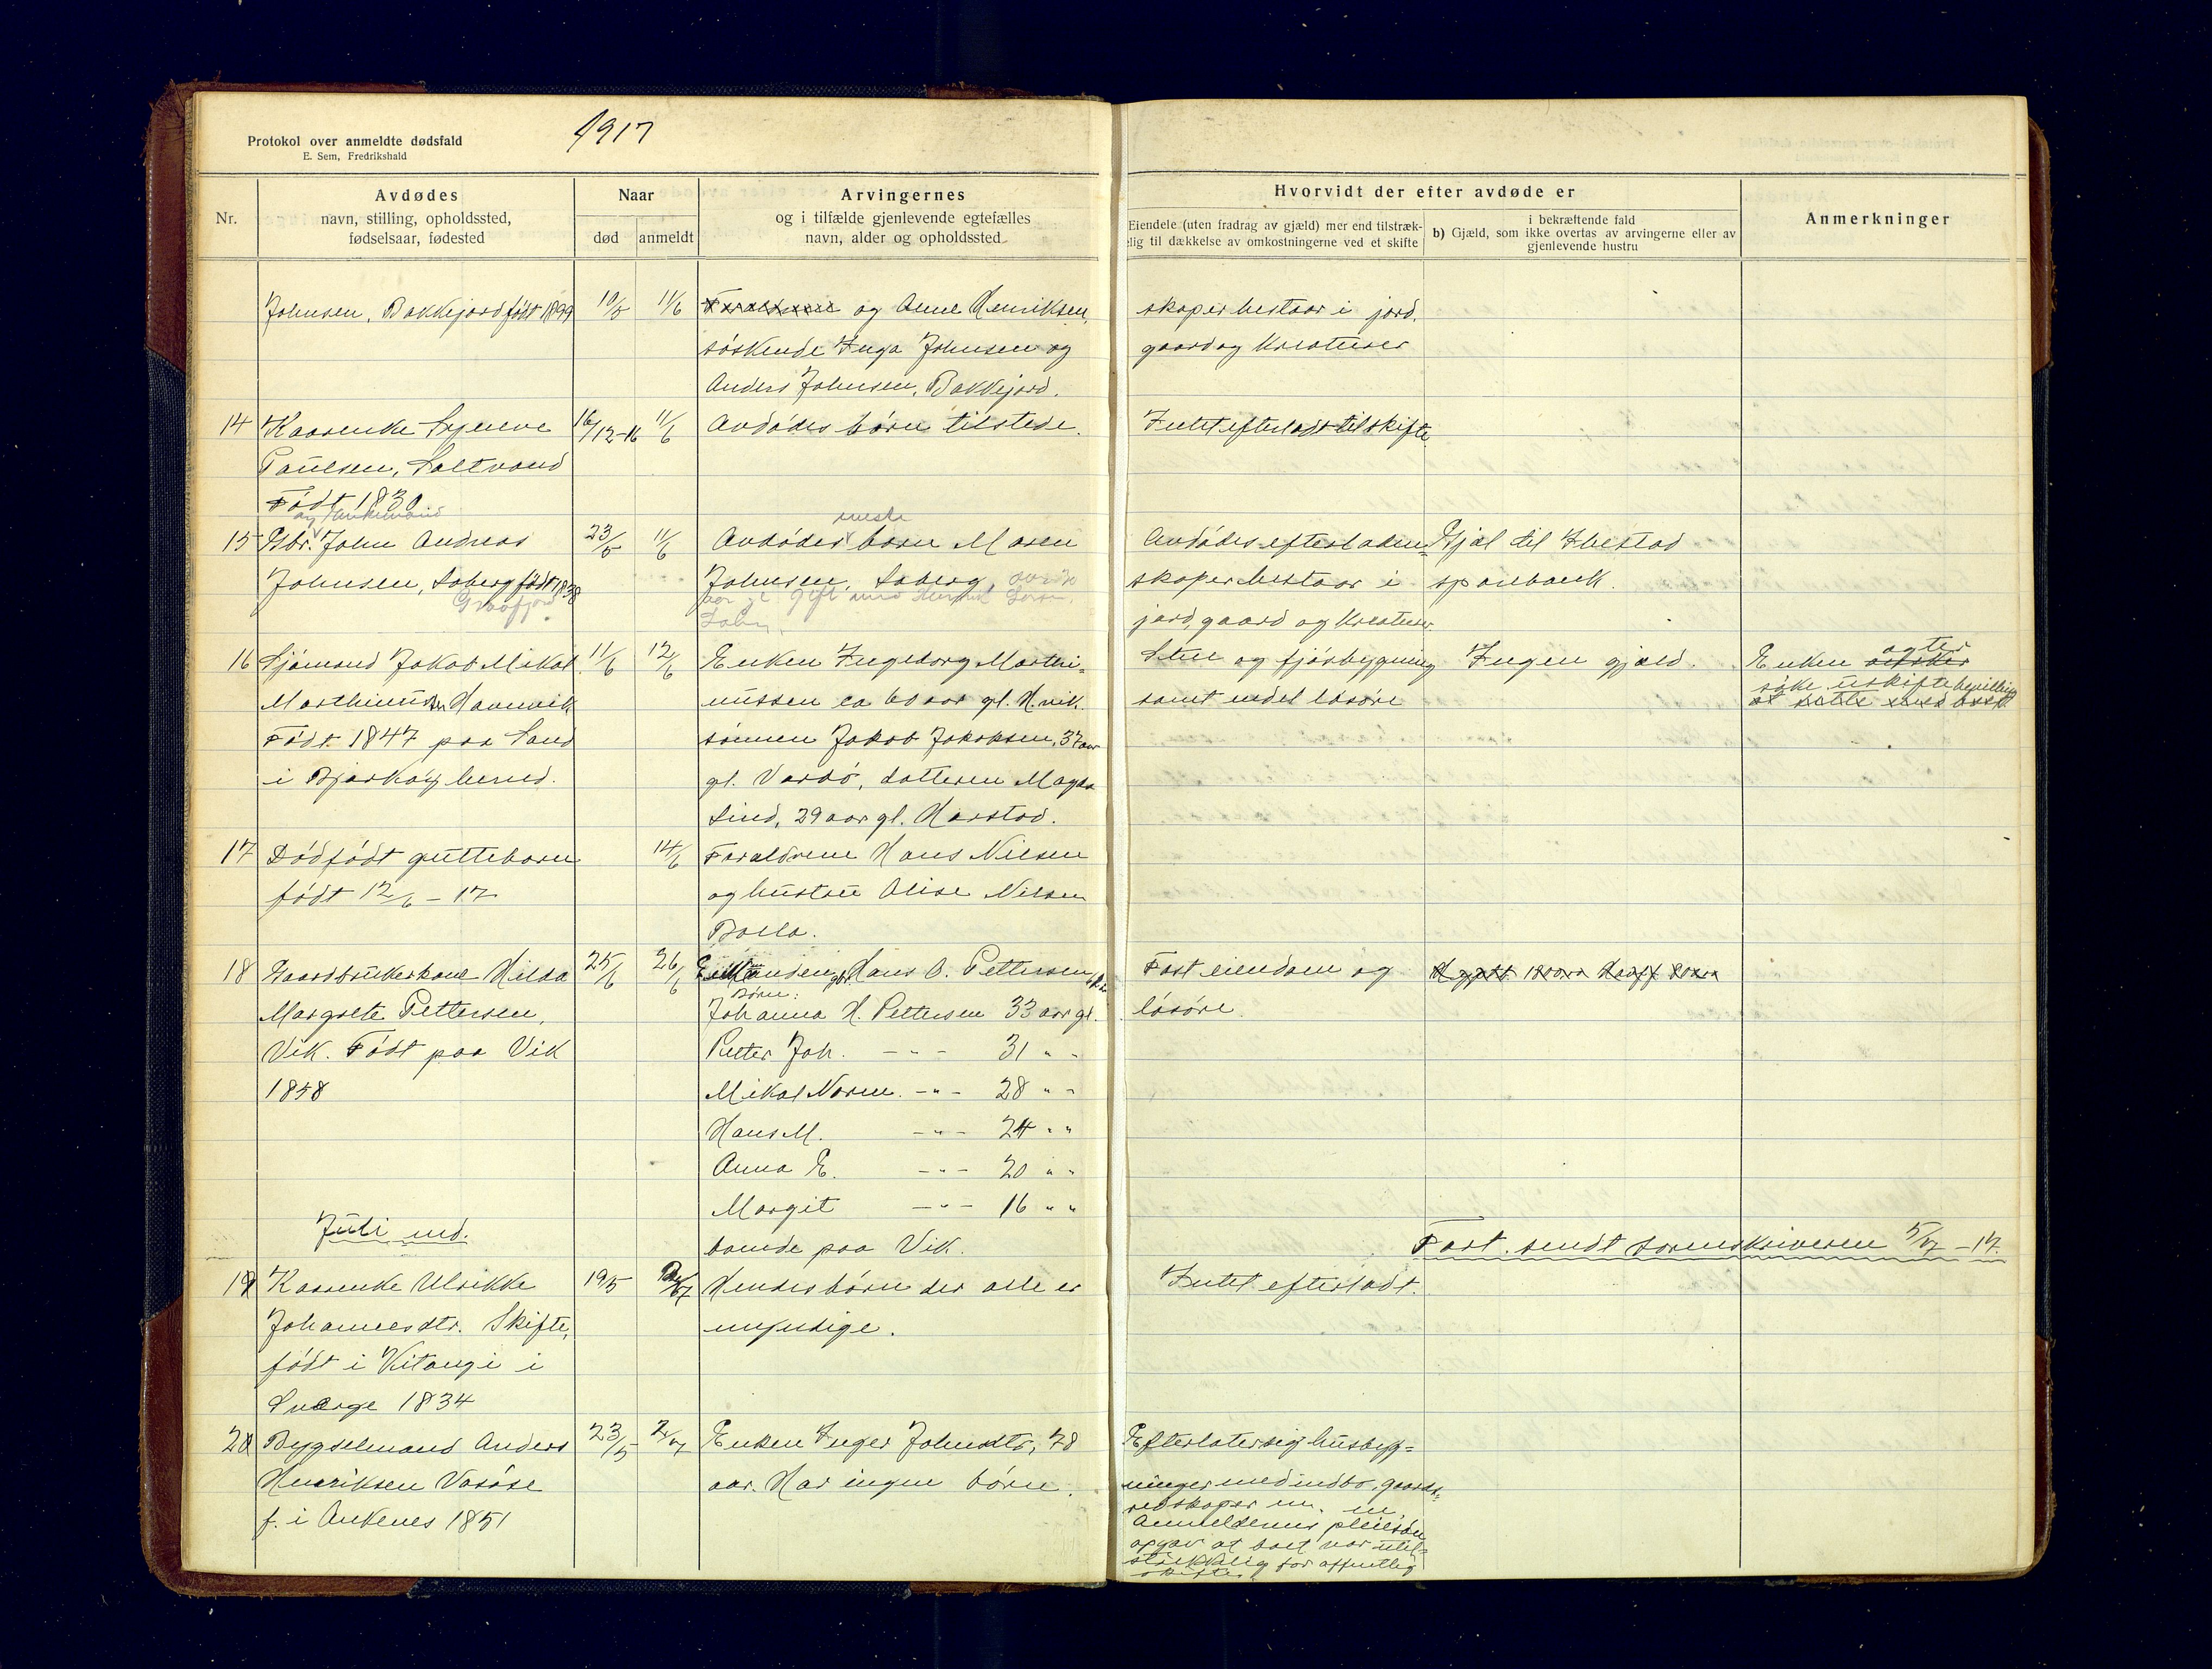 1917
Protokol over anmeldte dødsfald
E. Sem, Fredrikshald
Nr.
Avdødes
navn, stilling, opholdssted,
fødselsaar, fødested
Naar
død
anmeldt
Arvingernes
og i tilfælde gjenlevende egtefælles
navn, alder og opholdssted
Hvorvidt der efter avdøde er
Eiendele (uten fradrag av gjæld) mer end tilstræk-
lig til dækkelse av omkostningerne ved et skifte
i bekræftende fald
b) Gjæld, som ikke overtas av arvingerne eller av
gjenlevende hustru
Anmerkninger
Johnsen, Bakkejord født 1899
10/5
11/6
Forældrene og Anne Henriksen,
søskende Inga Johnsen og
Anders Johnsen, Bakkejord.
skaper bestaar i jord,
gaard og Kreaturer
14
Kaarenke
Paulsen, Saltvand
Født 1830
16/12-16
11/6
Avdødes børn tilstede.
Intet efterladt til skifte
og Enkemand
15
Gbr. John Andreas
Johnsen, Soberg født 1838
Gratfjord
23/5
11/6
eneste
Avdødes barn Maren
Johnsen, Soberg,
gift med
Avdødes efterladen-
skaper bestaar i
jord, gaard og Kreaturer
Gjæl til Ibestad
sparebank.
16
Sjømand Jakob Mikal
Marthinussen Havnvik
Født 1847 paa Sand
i Bjarkøy herred.
11/6
12/6
Enken Ingeborg Marthi-
nussen ca 60 aar gl. H.vik.
sønnen Jakob Jakobsen, 37 aar
gl. Vardø, datteren Magda
Lind, 29 aar gl. Harstad.
Stue og fjøsbygning
samt endel løsøre
Ingen gjæld.
agter
Enken ønsker
søke uskiftebevilling
at sitte med boet
17
Dødfødt guttebarn
født 12/6 - 17
14/6
Forældrene Hans Nilsen
og hustru Alise Nilsen
Balla.
18
Gaardbrukerkone Hilda
Margrete Pettersen,
Vik. Født paa Vik
1858
25/6
26/6
Enkemanden gbr. Hans O. Pettersen
Børn:
Johanna H. Pettersen 33 aar gl.
Petter Joh. - " - 31 " -
Mikal Norm. - " - 28 " -
Hans M. - " - 24 " "
Anna E. - " - 20 " -
Margit - " - 16 " "
boende paa Vik.
Fast eiendom og
løsøre.
Juli md.
Fort. sendt sorenskriveren 5/7 - 17.
19
Kaarenke Ulrikke
Johannesdtr. Skifte,
født i Vitangi i
Sverge 1834
19/5
2/7
Hendes børn der alle er
myndige.
Intet efterladt.
20
Bygselmand Anders
Henriksen Vasøse
f. i Ankenes 1851
23/5
2/7
Enken Inger Johnsdtr, 78
aar. Har ingen børn.
Efterlater sig husbyg-
ninger med indbo, gaards-
redskaper m. m.
Anmelderens pleiesøn
opgav at boet var util-
strækkelig for offentlig
skifte.